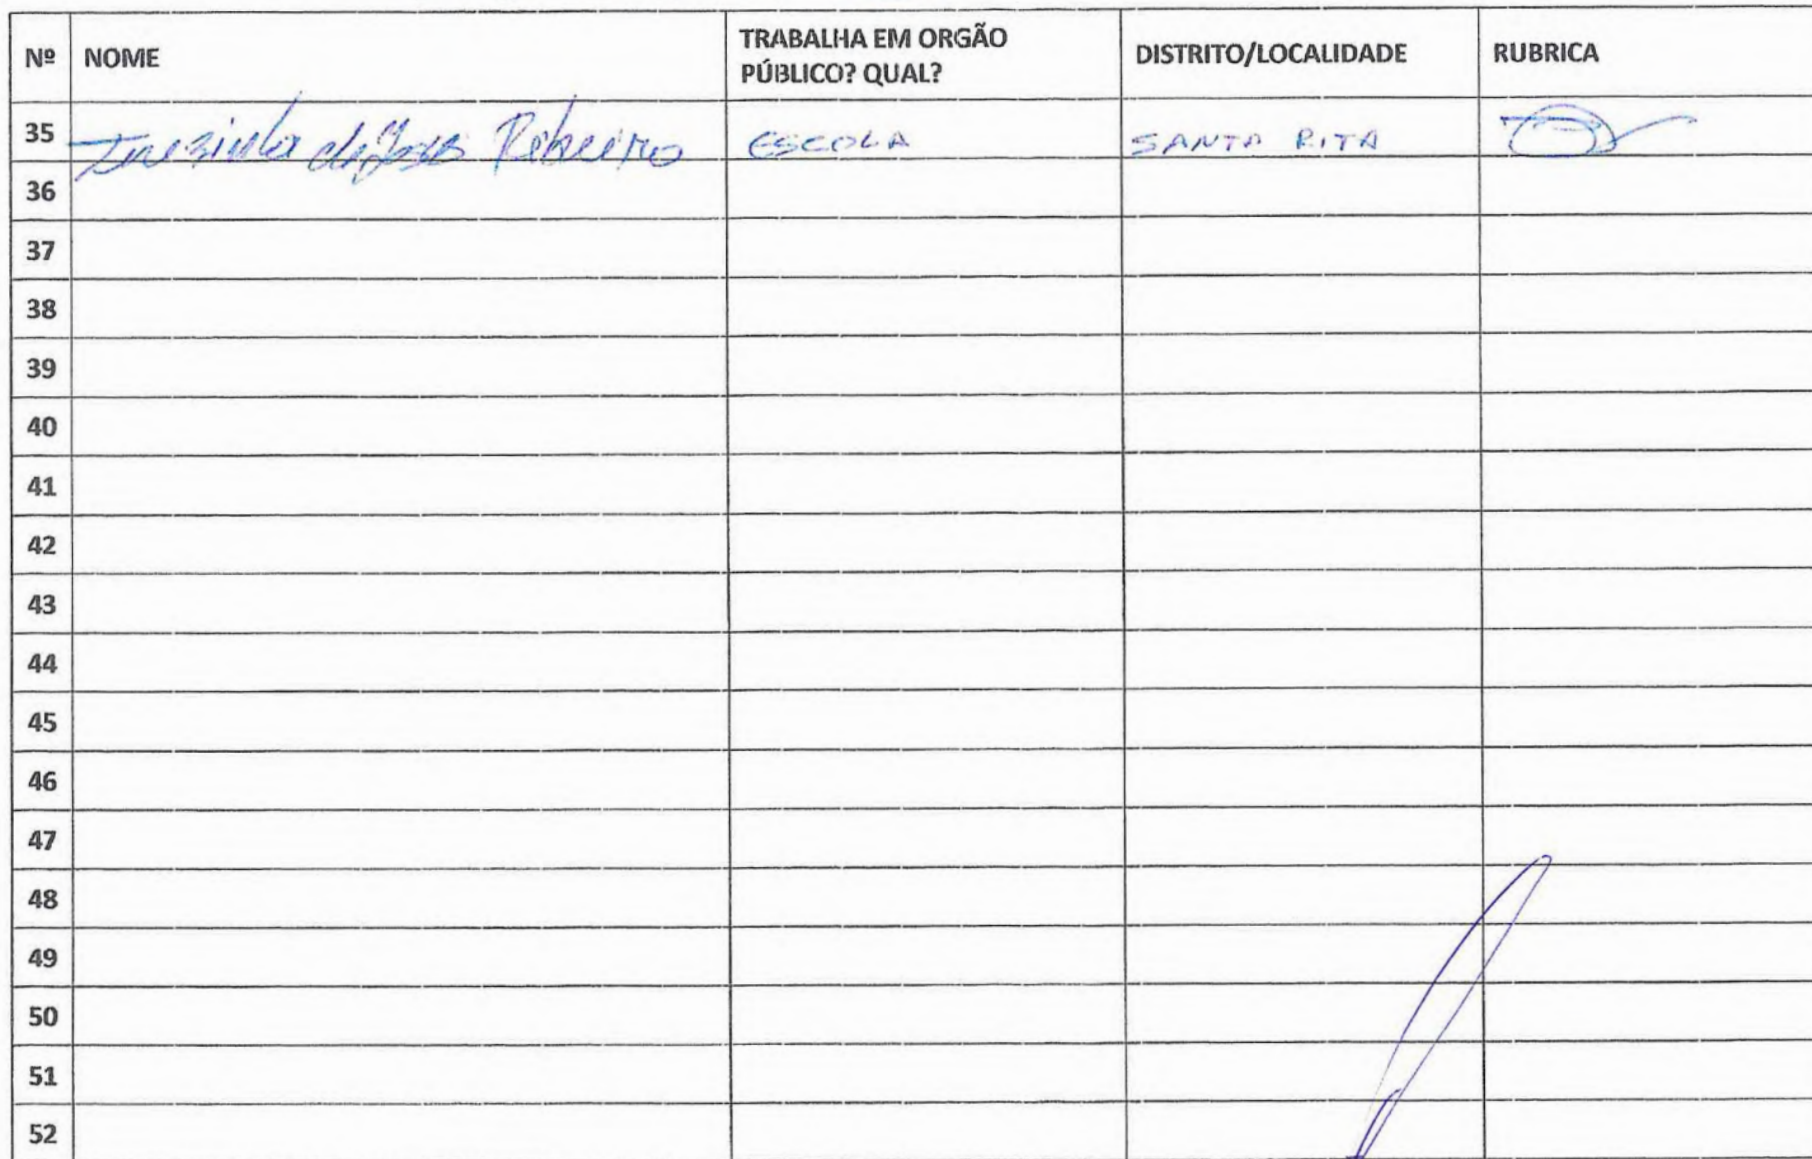 Nº NOME TRABALHA EM ORGÃO PÚBLICO? QUAL? DISTRITO/LOCALIDADE RUBRICA
35 de Jesus Ribeiro ESCOLA SANTA RITA
36
37
38
39
40
41
42
43
44
45
46
47
48
49
50
51
52